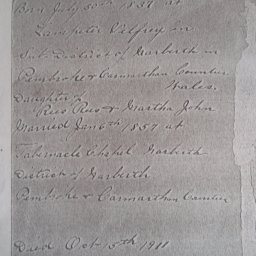 Born July 30th 1837 at
Lampeter Velfrey in
Sub-District of Narberth in
Pembroke & Carmarthan Counties
Wales.
Daughter of
Rees Rees & Martha John
Married Jan 6th 1857 at
Tabernacle Chapel Narberth
District of Narberth
Pembroke & Carmarthan Counties
Died Oct 15th 1911